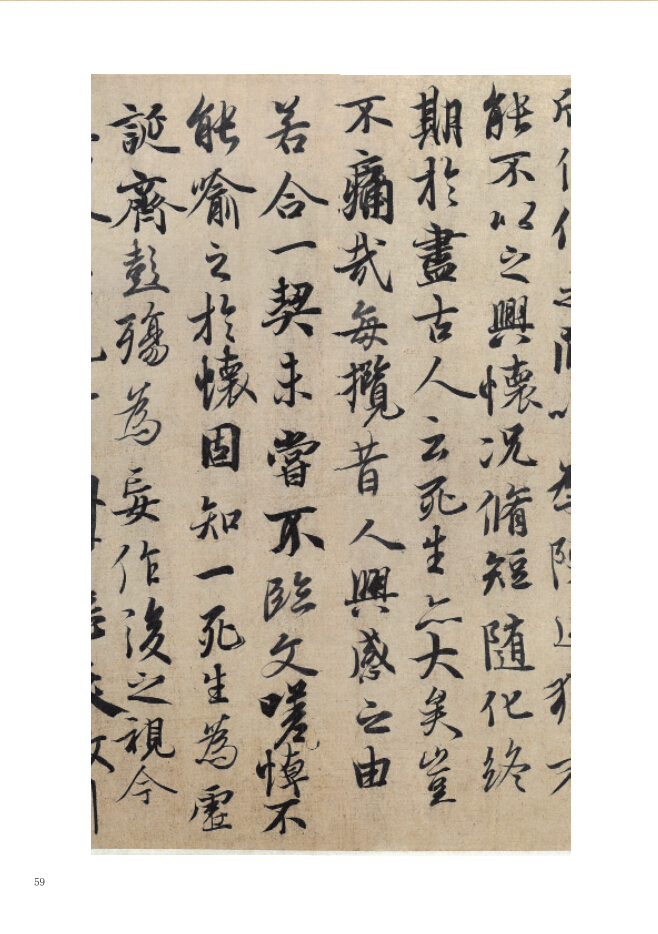 能不以之興懷况脩短隨化終
期於盡古人云死生亦大矣豈
不痛哉每攬昔人興感之由
若合一契未嘗不臨文嗟悼不
能喻之於懷固知一死生為虛
誕齊彭殤為妄作後之視今
59